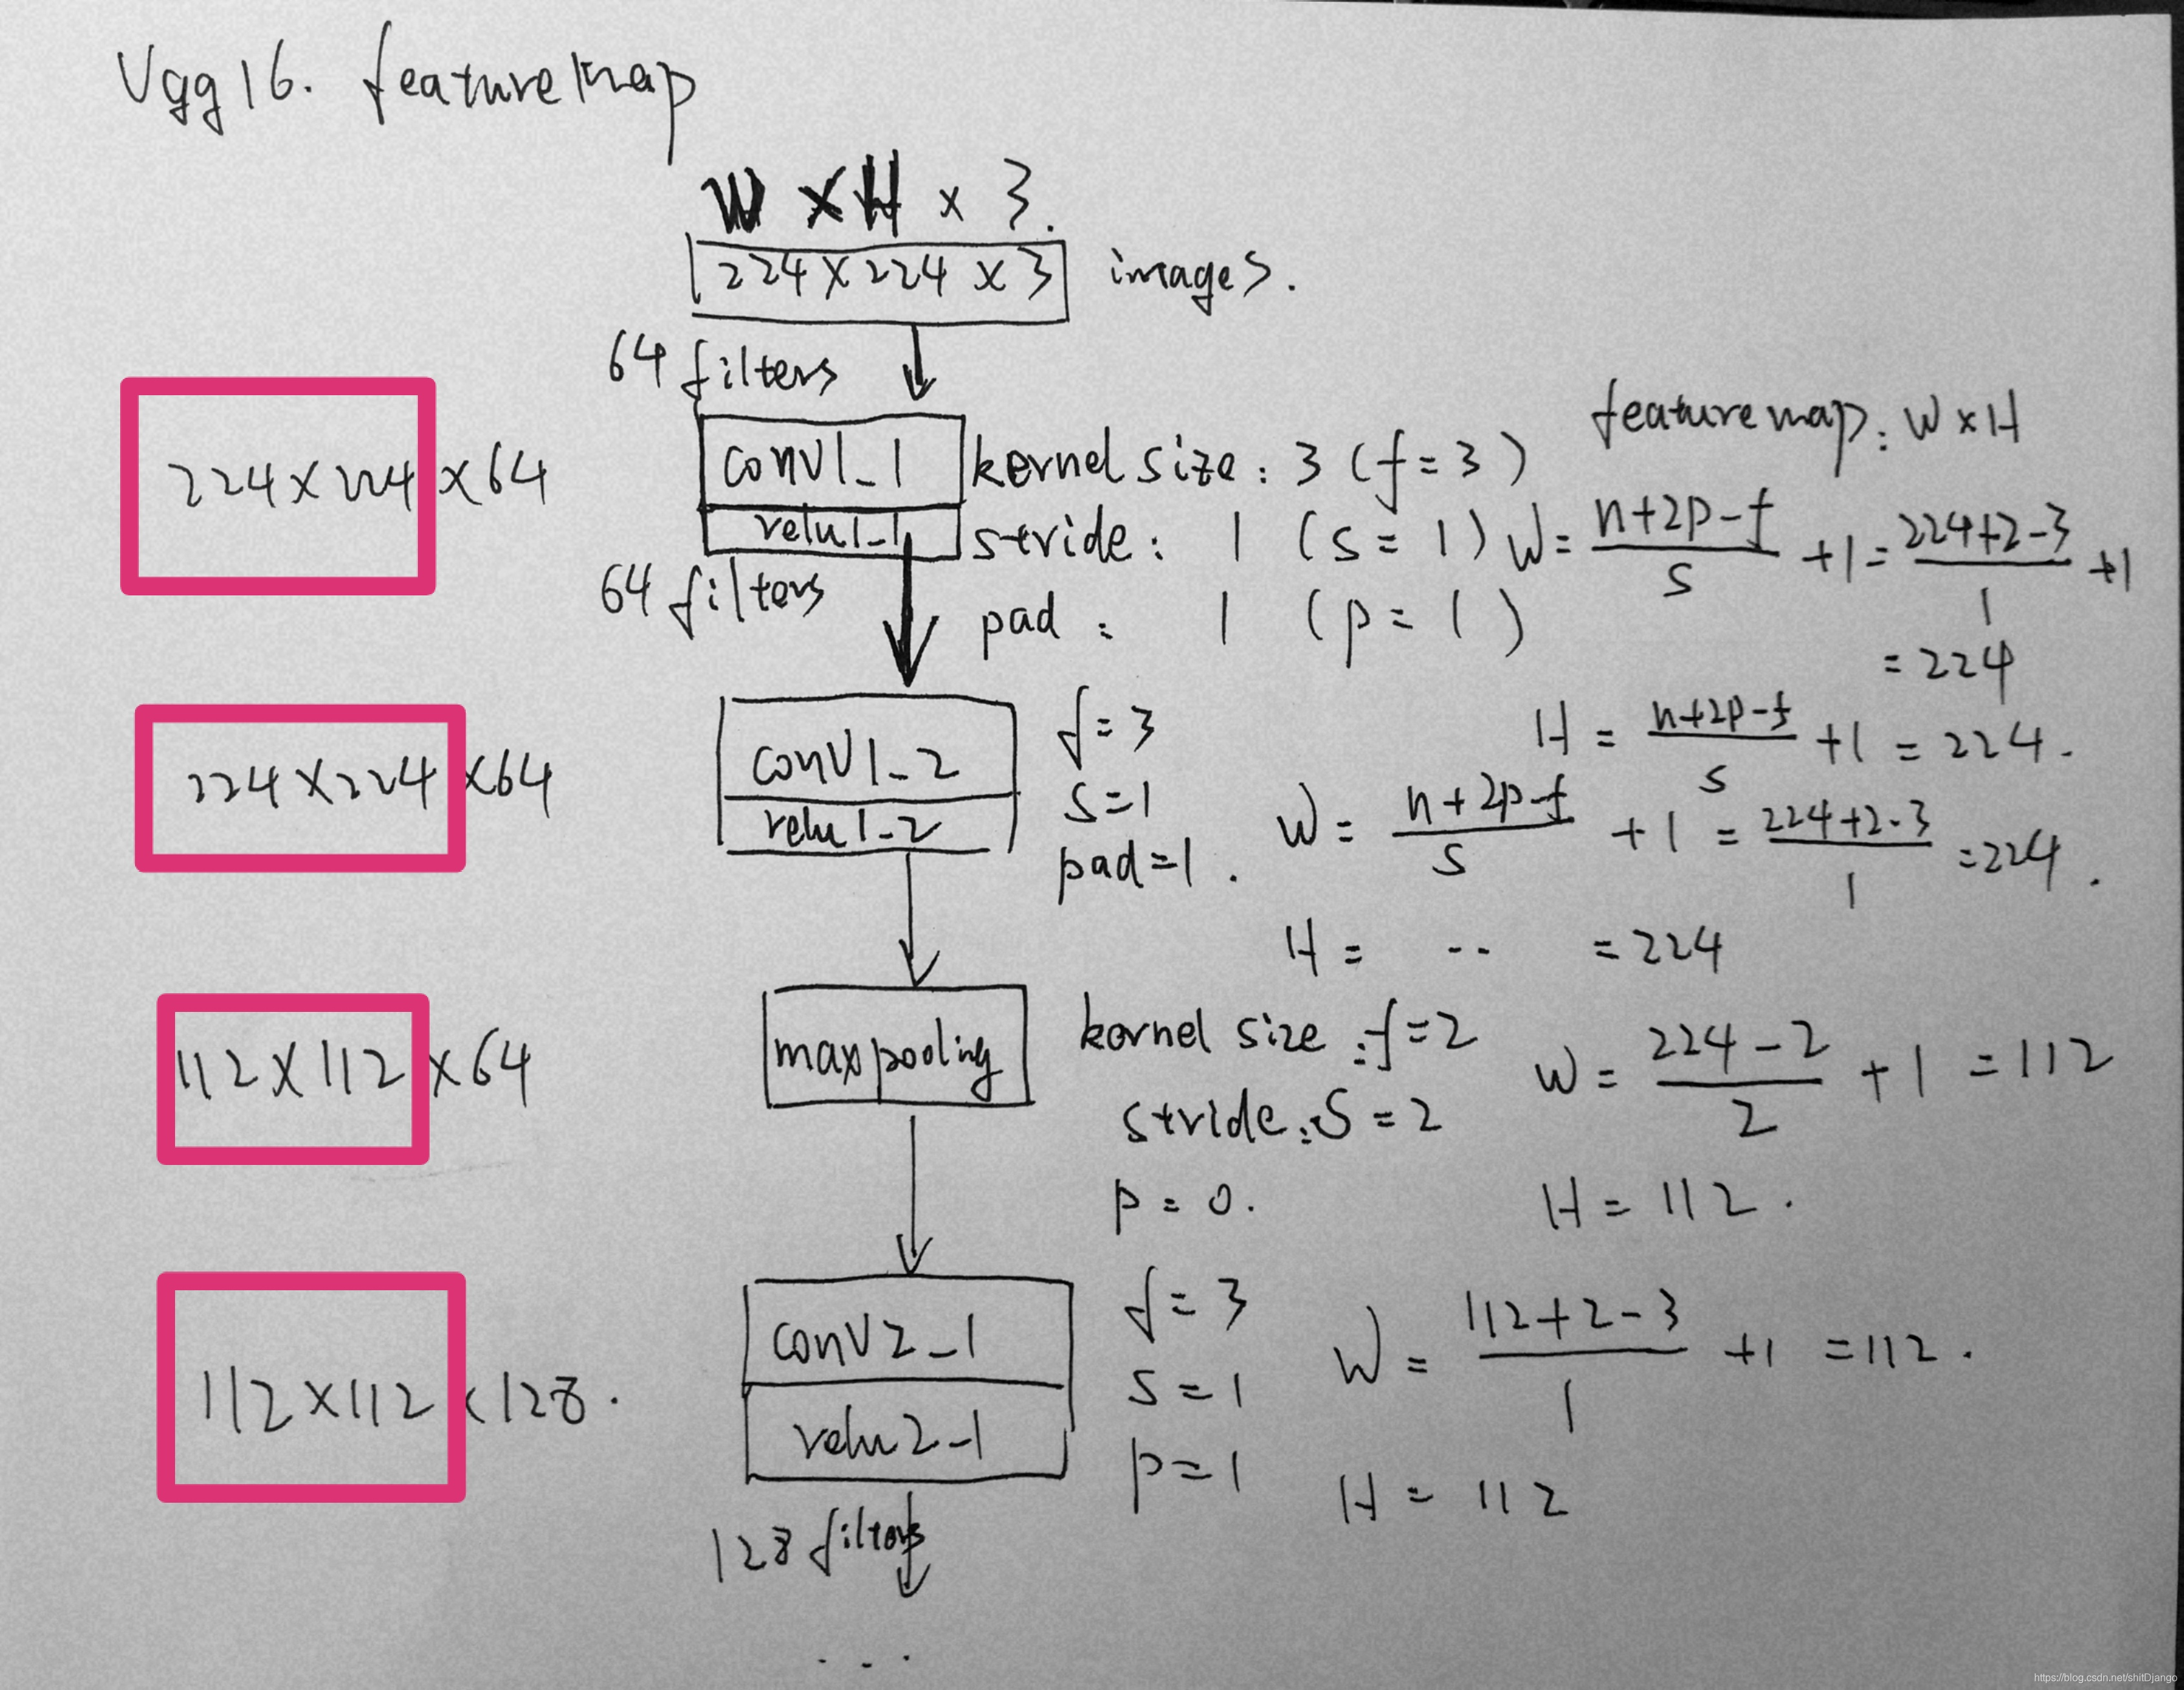 Vgg16. feature map
W × H × 3.
224 × 224 × 3 images.
64 filters
224 × 224 × 64
conv1_1
relu1_1
kernel size: 3 (f = 3)
stride: 1 (s = 1)
pad: 1 (p = 1)
feature map: W × H
W = (n+2p-f)/s + 1 = (224+2-3)/1 + 1
= 224
H = (n+2p-f)/s + 1 = 224.
64 filters
224 × 224 × 64
conv1_2
relu1_2
f = 3
s = 1
pad = 1.
W = (n+2p-f)/s + 1 = (224+2-3)/1 = 224.
H = -- = 224
112 × 112 × 64
maxpooling
kernel size: f = 2
stride: S = 2
p = 0.
W = (224-2)/2 + 1 = 112
H = 112.
112 × 112 × 128.
conv2_1
relu2-1
f = 3
s = 1
p = 1
W = (112+2-3)/1 + 1 = 112.
H = 112
128 filters
...
https://blog.csdn.net/shitDjango